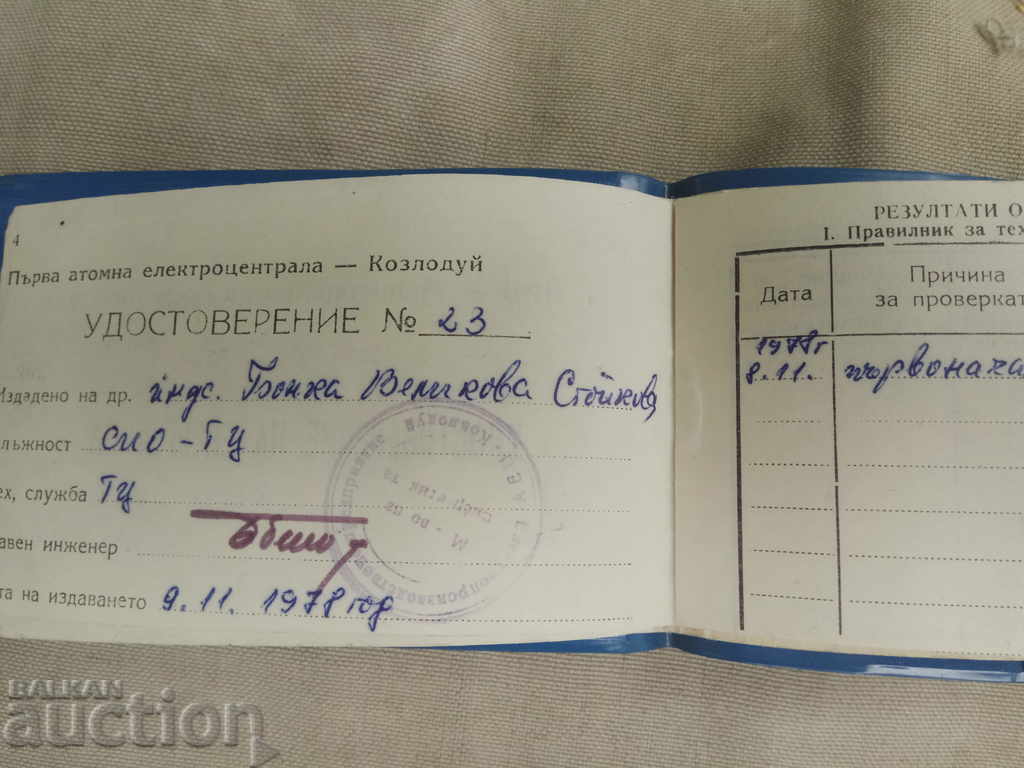 4
Първа атомна електроцентрала — Козлодуй
УДОСТОВЕРЕНИЕ № 23
Издадено на др. индс. Бонка Великова Стойкова
лъжност СИО - ТЦ
ех, служба ТЦ
авен инженер
та на издаването 9.11. 1978 год
РЕЗУЛТАТИ О
I. Правилник за тех
Дата
Причина
за проверкат
1978 г
8.11. първонача
BALKAN
auction